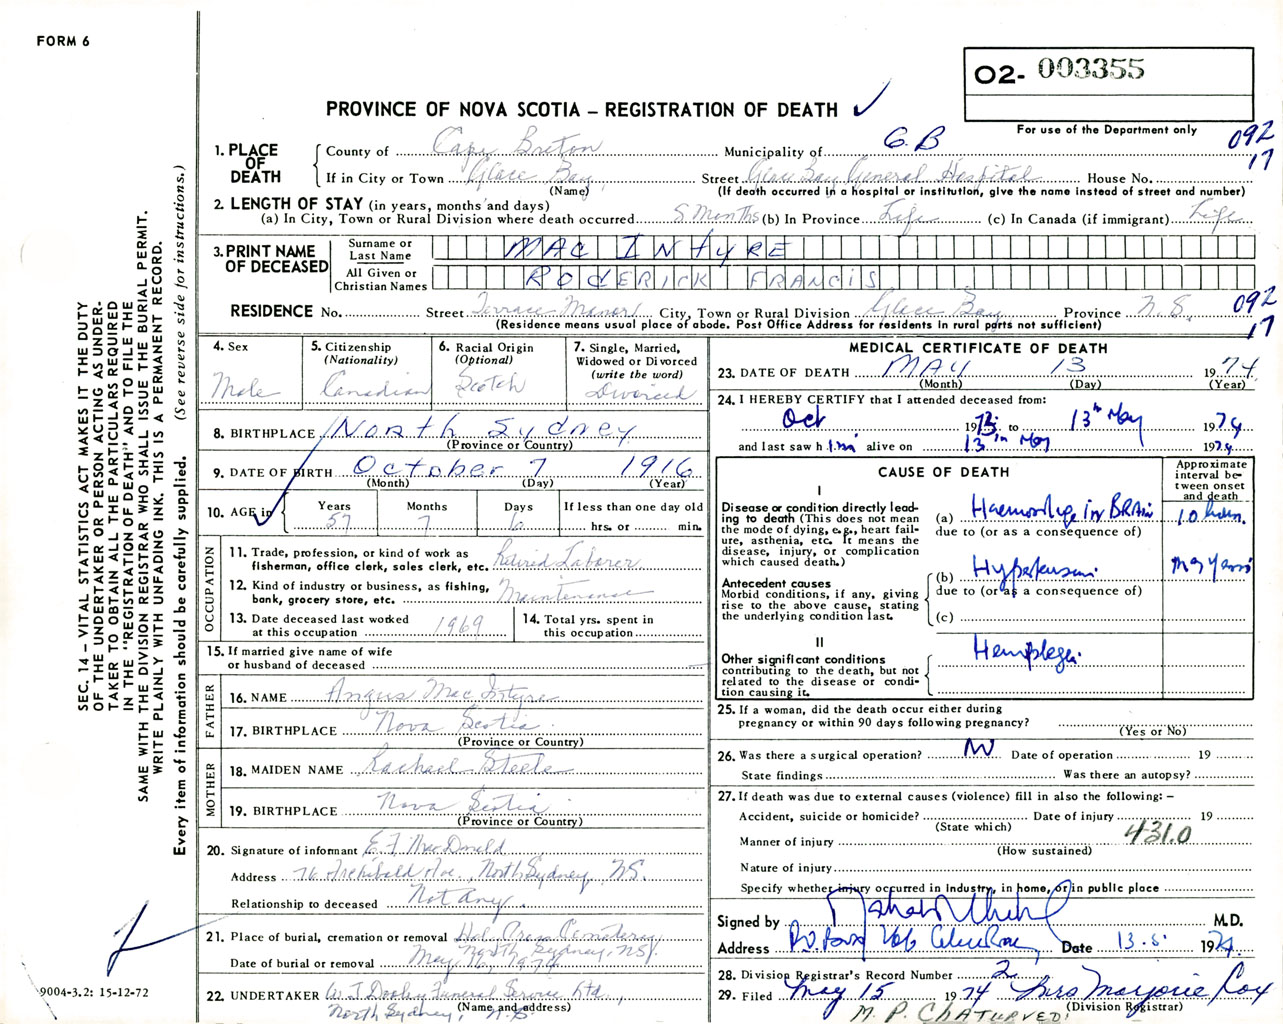 FORM 6
O2- 003355
For use of the Department only
PROVINCE OF NOVA SCOTIA – REGISTRATION OF DEATH
092
17
1. PLACE OF DEATH
County of Cape Breton Municipality of G.B
If in City or Town Glace Bay (Name) Street Glace Bay General Hospital House No.
(If death occurred in a hospital or institution, give the name instead of street and number)
2. LENGTH OF STAY (in years, months and days)
(a) In City, Town or Rural Division where death occurred 8 Months (b) In Province Life (c) In Canada (if immigrant) Life
3. PRINT NAME OF DECEASED
Surname or Last Name MAC INTYRE
All Given or Christian Names RODERICK FRANCIS
RESIDENCE No. Street Terrace Manor City, Town or Rural Division Glace Bay Province N.S. 092
17
(Residence means usual place of abode. Post Office Address for residents in rural parts not sufficient)
4. Sex
Male
5. Citizenship (Nationality)
Canadian
6. Racial Origin (Optional)
Scotch
7. Single, Married, Widowed or Divorced (write the word)
Divorced
8. BIRTHPLACE North Sydney
(Province or Country)
9. DATE OF BIRTH October 7 1916
(Month) (Day) (Year)
10. AGE in Years 57 Months 7 Days 6 If less than one day old hrs. or min.
OCCUPATION
11. Trade, profession, or kind of work as fisherman, office clerk, sales clerk, etc. Retired Laborer
12. Kind of industry or business, as fishing, bank, grocery store, etc. Maintenance
13. Date deceased last worked at this occupation 1969
14. Total yrs. spent in this occupation
15. If married give name of wife or husband of deceased
FATHER
16. NAME Angus MacIntyre
17. BIRTHPLACE Nova Scotia
(Province or Country)
MOTHER
18. MAIDEN NAME Rachael Steele
19. BIRTHPLACE Nova Scotia
(Province or Country)
20. Signature of informant E F MacDonald
Address 76 Archibald Ave., North Sydney, NS.
Relationship to deceased Not any
21. Place of burial, cremation or removal Holy Cross Cemetery
North Sydney, NS.
Date of burial or removal May 16, 1974
22. UNDERTAKER W J Dooley Funeral Service Ltd.,
North Sydney, N.S (Name and address)
MEDICAL CERTIFICATE OF DEATH
23. DATE OF DEATH MAY 13 1974
(Month) (Day) (Year)
24. I HEREBY CERTIFY that I attended deceased from:
Oct 1973 to 13th May 1974
and last saw him alive on 13th May 1974
CAUSE OF DEATH
Approximate interval between onset and death
I
Disease or condition directly leading to death (This does not mean the mode of dying, e.g., heart failure, asthenia, etc. It means the disease, injury, or complication which caused death.)
(a) Haemorrhage in BRAIN
due to (or as a consequence of)
Antecedent causes
Morbid conditions, if any, giving rise to the above cause, stating the underlying condition last.
(b) Hypertension
many years
due to (or as a consequence of)
(c)
II
Other significant conditions contributing to the death, but not related to the disease or condition causing it.
Hemiplegia
25. If a woman, did the death occur either during pregnancy or within 90 days following pregnancy?
(Yes or No)
26. Was there a surgical operation? No Date of operation 19
State findings Was there an autopsy?
27. If death was due to external causes (violence) fill in also the following: –
Accident, suicide or homicide? Date of injury 19
(State which)
Manner of injury 431.0
(How sustained)
Nature of injury
Specify whether injury occurred in Industry, in home, or in public place
Signed by M.D.
Address Date 13.5. 1974
28. Division Registrar's Record Number 2
29. Filed May 15 1974 Mrs Marjorie Cox
(Division Registrar)
M. P. CHATURVEDI
SEC. 14 – VITAL STATISTICS ACT MAKES IT THE DUTY
OF THE UNDERTAKER OR PERSON ACTING AS UNDER-
TAKER TO OBTAIN ALL THE PARTICULARS REQUIRED
IN THE "REGISTRATION OF DEATH" AND TO FILE THE
SAME WITH THE DIVISION REGISTRAR WHO SHALL ISSUE THE BURIAL PERMIT.
WRITE PLAINLY WITH UNFADING INK. THIS IS A PERMANENT RECORD.
Every item of information should be carefully supplied. (See reverse side for instructions.)
9004-3.2: 15-12-72